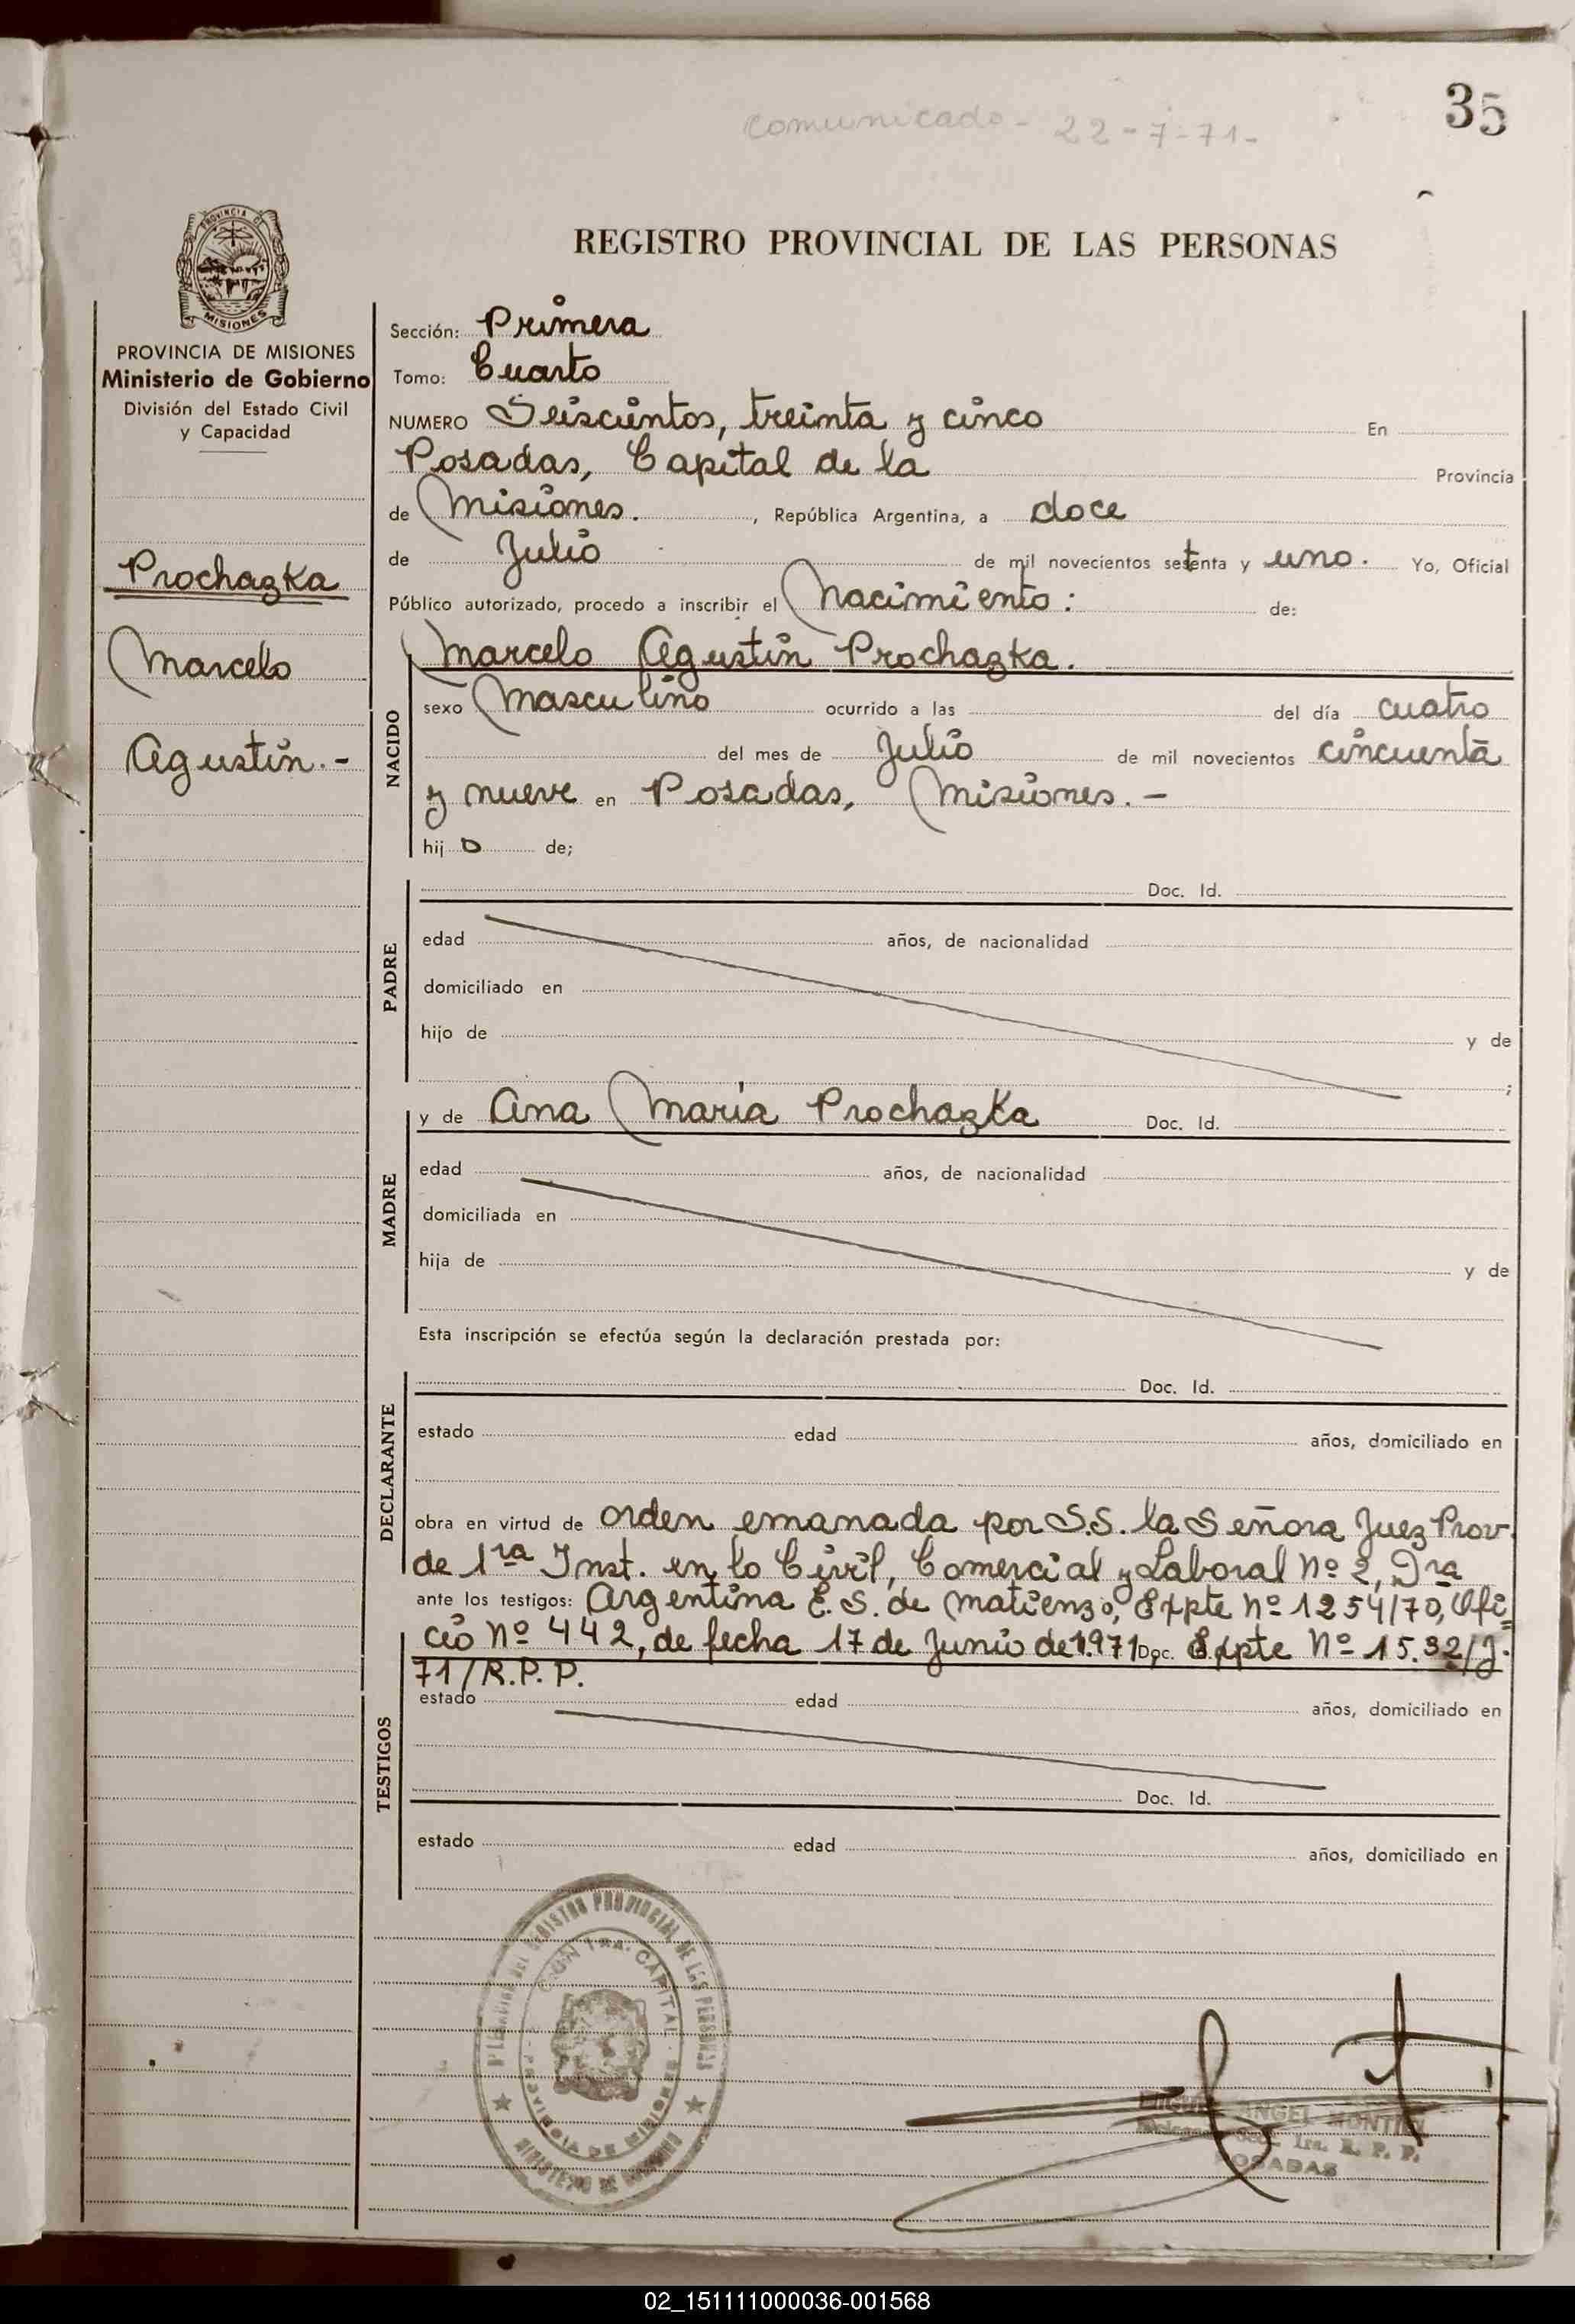 Comunicado - 22-7-71-
35
PROVINCIA DE
MISIONES
REGISTRO PROVINCIAL DE LAS PERSONAS
PROVINCIA DE MISIONES
Ministerio de Gobierno
División del Estado Civil
y Capacidad
Prochazka
Marcelo
Agustín.-
Sección: Primera
Tomo: Cuarto
NUMERO Seiscientos, treinta y cinco En
Posadas, Capital de la Provincia
de Misiones. , República Argentina, a doce
de Julio de mil novecientos setenta y uno. Yo, Oficial
Público autorizado, procedo a inscribir el Nacimiento: de:
NACIDO
Marcelo Agustín Prochazka.
sexo Masculino ocurrido a las del día cuatro
del mes de Julio de mil novecientos cincuenta
y nueve en Posadas, Misiones.-
hij o de;
PADRE
Doc. Id.
edad años, de nacionalidad
domiciliado en
hijo de y de
;
MADRE
y de Ana María Prochazka Doc. Id.
edad años, de nacionalidad
domiciliada en
hija de y de
Esta inscripción se efectúa según la declaración prestada por:
DECLARANTE
Doc. Id.
estado edad años, domiciliado en
obra en virtud de orden emanada por S.S. la Señora Juez Prov.
de 1ra Inst. en lo Civil, Comercial y Laboral Nº 2, Dra
ante los testigos: Argentina E. S. de Matienzo, Expte Nº 1254/70, Ofi-
cio Nº 442, de fecha 17 de Junio de 1.971 Doc. Expte Nº 15.32/J.
71/R.P.P.
TESTIGOS
estado edad años, domiciliado en
Doc. Id.
estado edad años, domiciliado en
REGISTRO PROVINCIAL DE LAS PERSONAS
1RA. CAPITAL
PROVINCIA DE MISIONES
MINISTERIO DE
ANGEL MONTIEL
1ra. R. P. P.
POSADAS
02_151111000036-001568